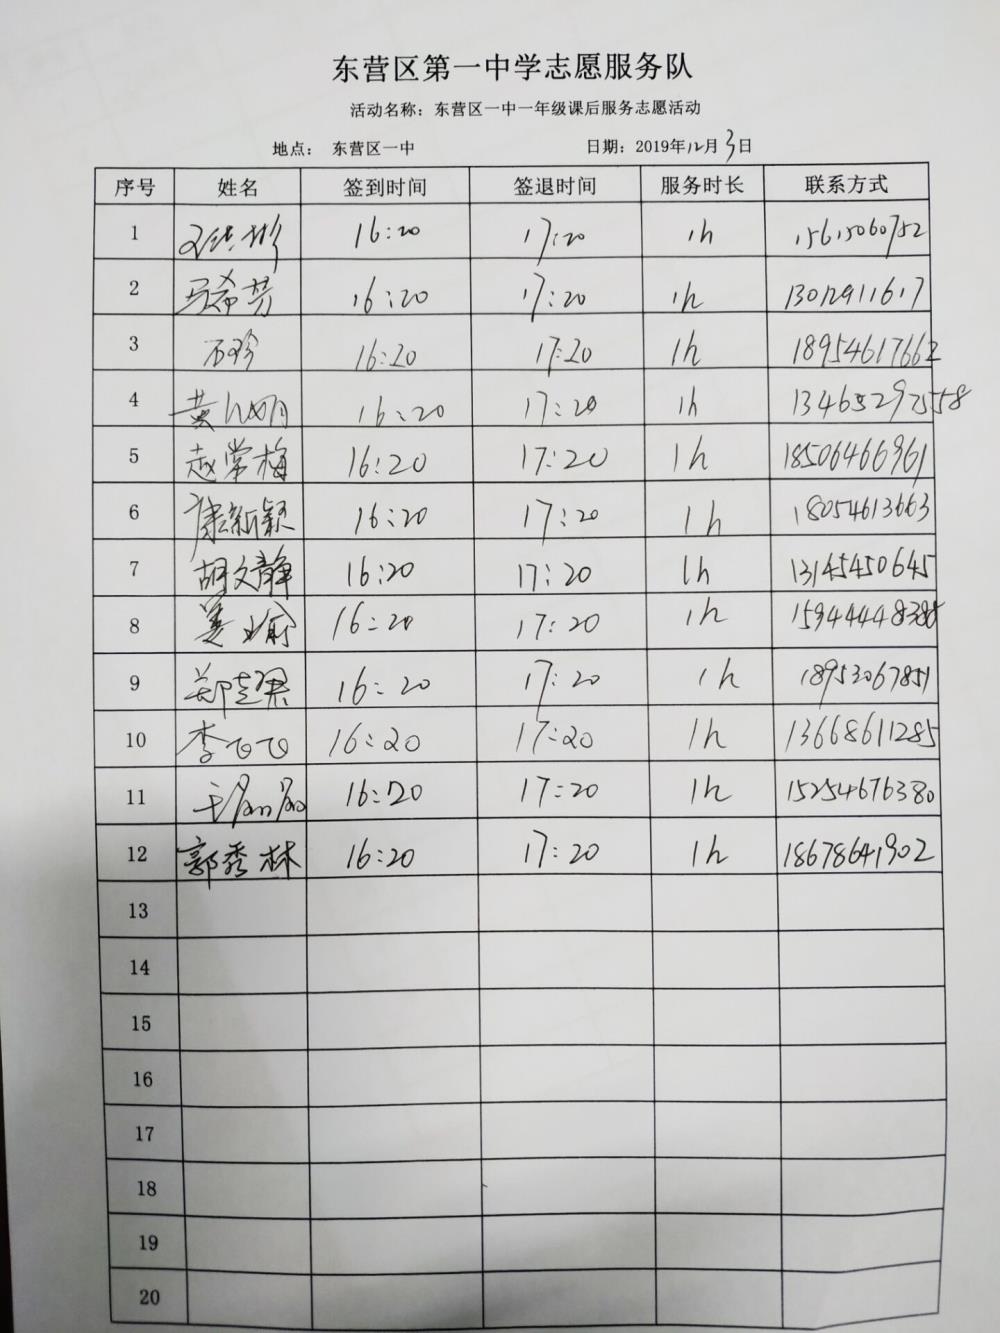 东营区第一中学志愿服务队
活动名称：东营区一中一年级课后服务志愿活动
地点： 东营区一中 日期：2019年12月3日
序号 姓名 签到时间 签退时间 服务时长 联系方式
1 16:20 17:20 1h 15615060752
2 马希芳 16:20 17:20 1h 13012911617
3 石珍 16:20 17:20 1h 18954617662
4 黄 16:20 17:20 1h
5 赵常梅 16:20 17:20 1h 18506466961
6 康新颖 16:20 17:20 1h 18054613663
7 胡文静 16:20 17:20 1h 13145450645
8 姜瑜 16:20 17:20 1h
9 郑 16:20 17:20 1h 18953067851
10 李飞飞 16:20 17:20 1h 13668611285
11 王 16:20 17:20 1h 15254676380
12 郭秀林 16:20 17:20 1h 18678641902
13
14
15
16
17
18
19
20